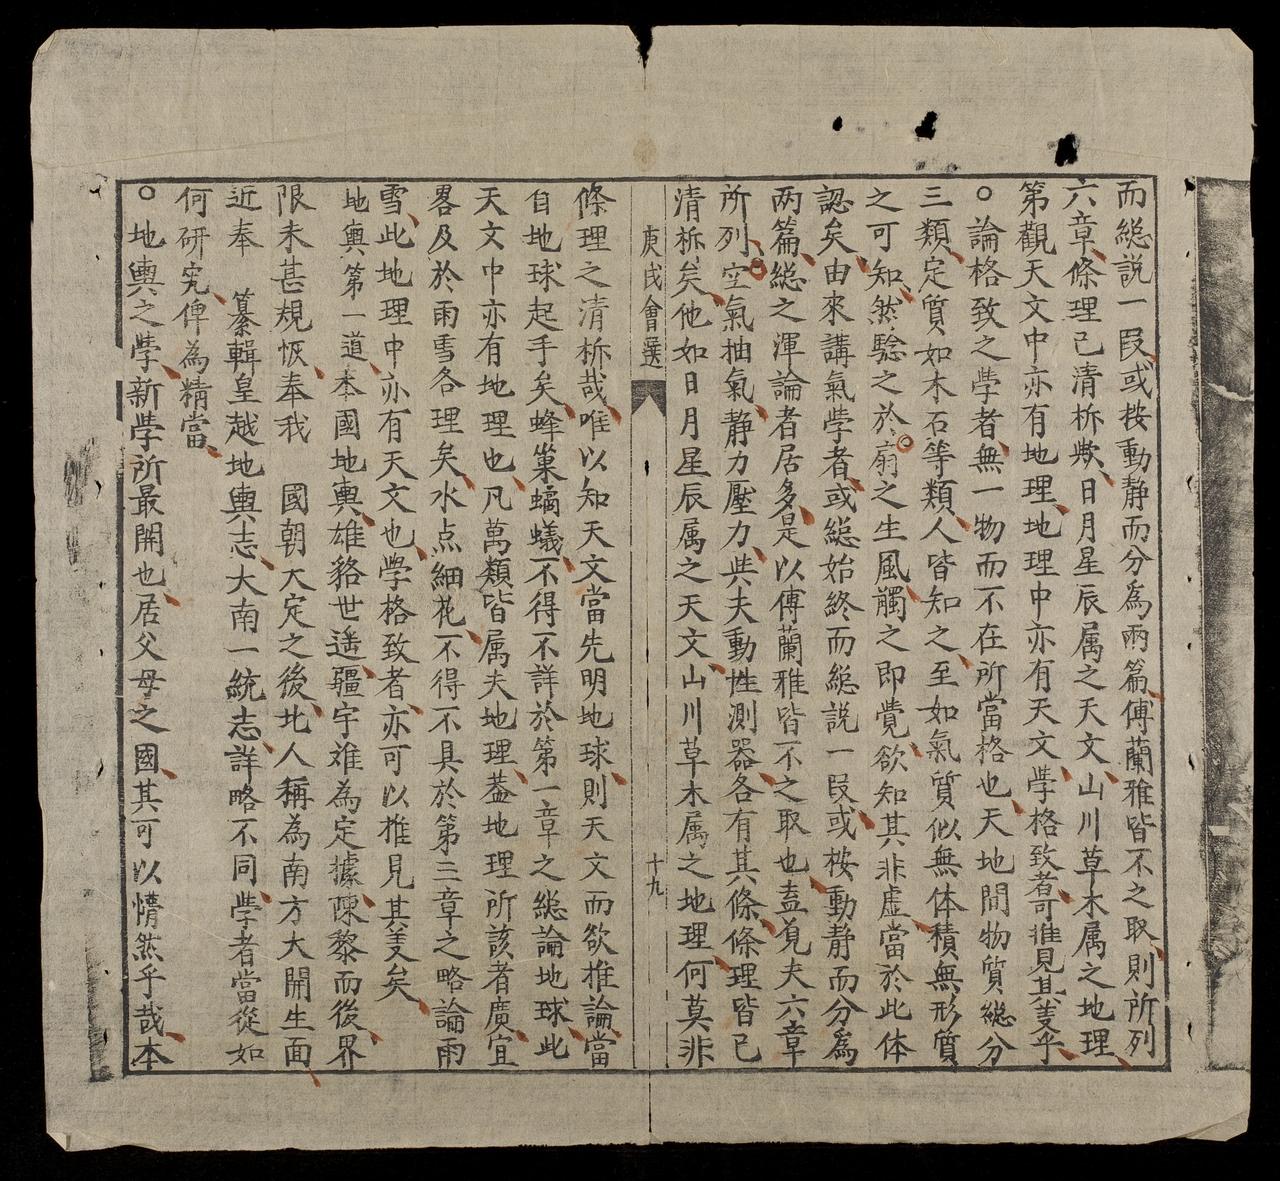 而緫說一段或桉動静而分爲兩篇傅蘭雅皆不之取則所列
六章條理已清柝欺日月星辰属之天文山川草木属之地理
第觀天文中亦有地理地理中亦有天文學格致者可推見其芰乎
○論格致之學者無一物而不在所當格也天地間物質緫分
三類定質如木石等類人皆知之至如氣質似無体積無形質
之可知然驗之於扇之生風觸之即覺欲知其非虛當於此体
認矣由來講氣學者或緫始終而緫說一段或桉動静而分爲
两篇緫之渾論者居多是以傅蘭雅皆不之取也盍覓夫六章
所列空氣抽氣静力壓力與夫動性測器各有其條條理皆已
清柝矣他如日月星辰属之天文山川草木属之地理何莫非
庚戌會選
十九
條理之清柝哉唯以知天文當先明地球則天文而欲推論當
自地球起手矣蜂巢蟻不得不詳於第一章之緫論地球此
天文中亦有地理也凡萬類皆属夫地理葢地理所該者廣宜
畧及於雨雪各理矣水点細花不得不具於第三章之略論雨
雪此地理中亦有天文也學格致者亦可以推見其芰矣
地輿第一道本國地輿雄貉世遥疆宇难為定據陳黎而後界
限未甚規恢奉我 國朝大定之後北人稱為南方大開生面
近奉 纂輯皇越地輿志大南一統志詳略不同學者當從如
何研究俾為精當
○地輿之學新學所最開也居父母之國其可以懵然乎哉本